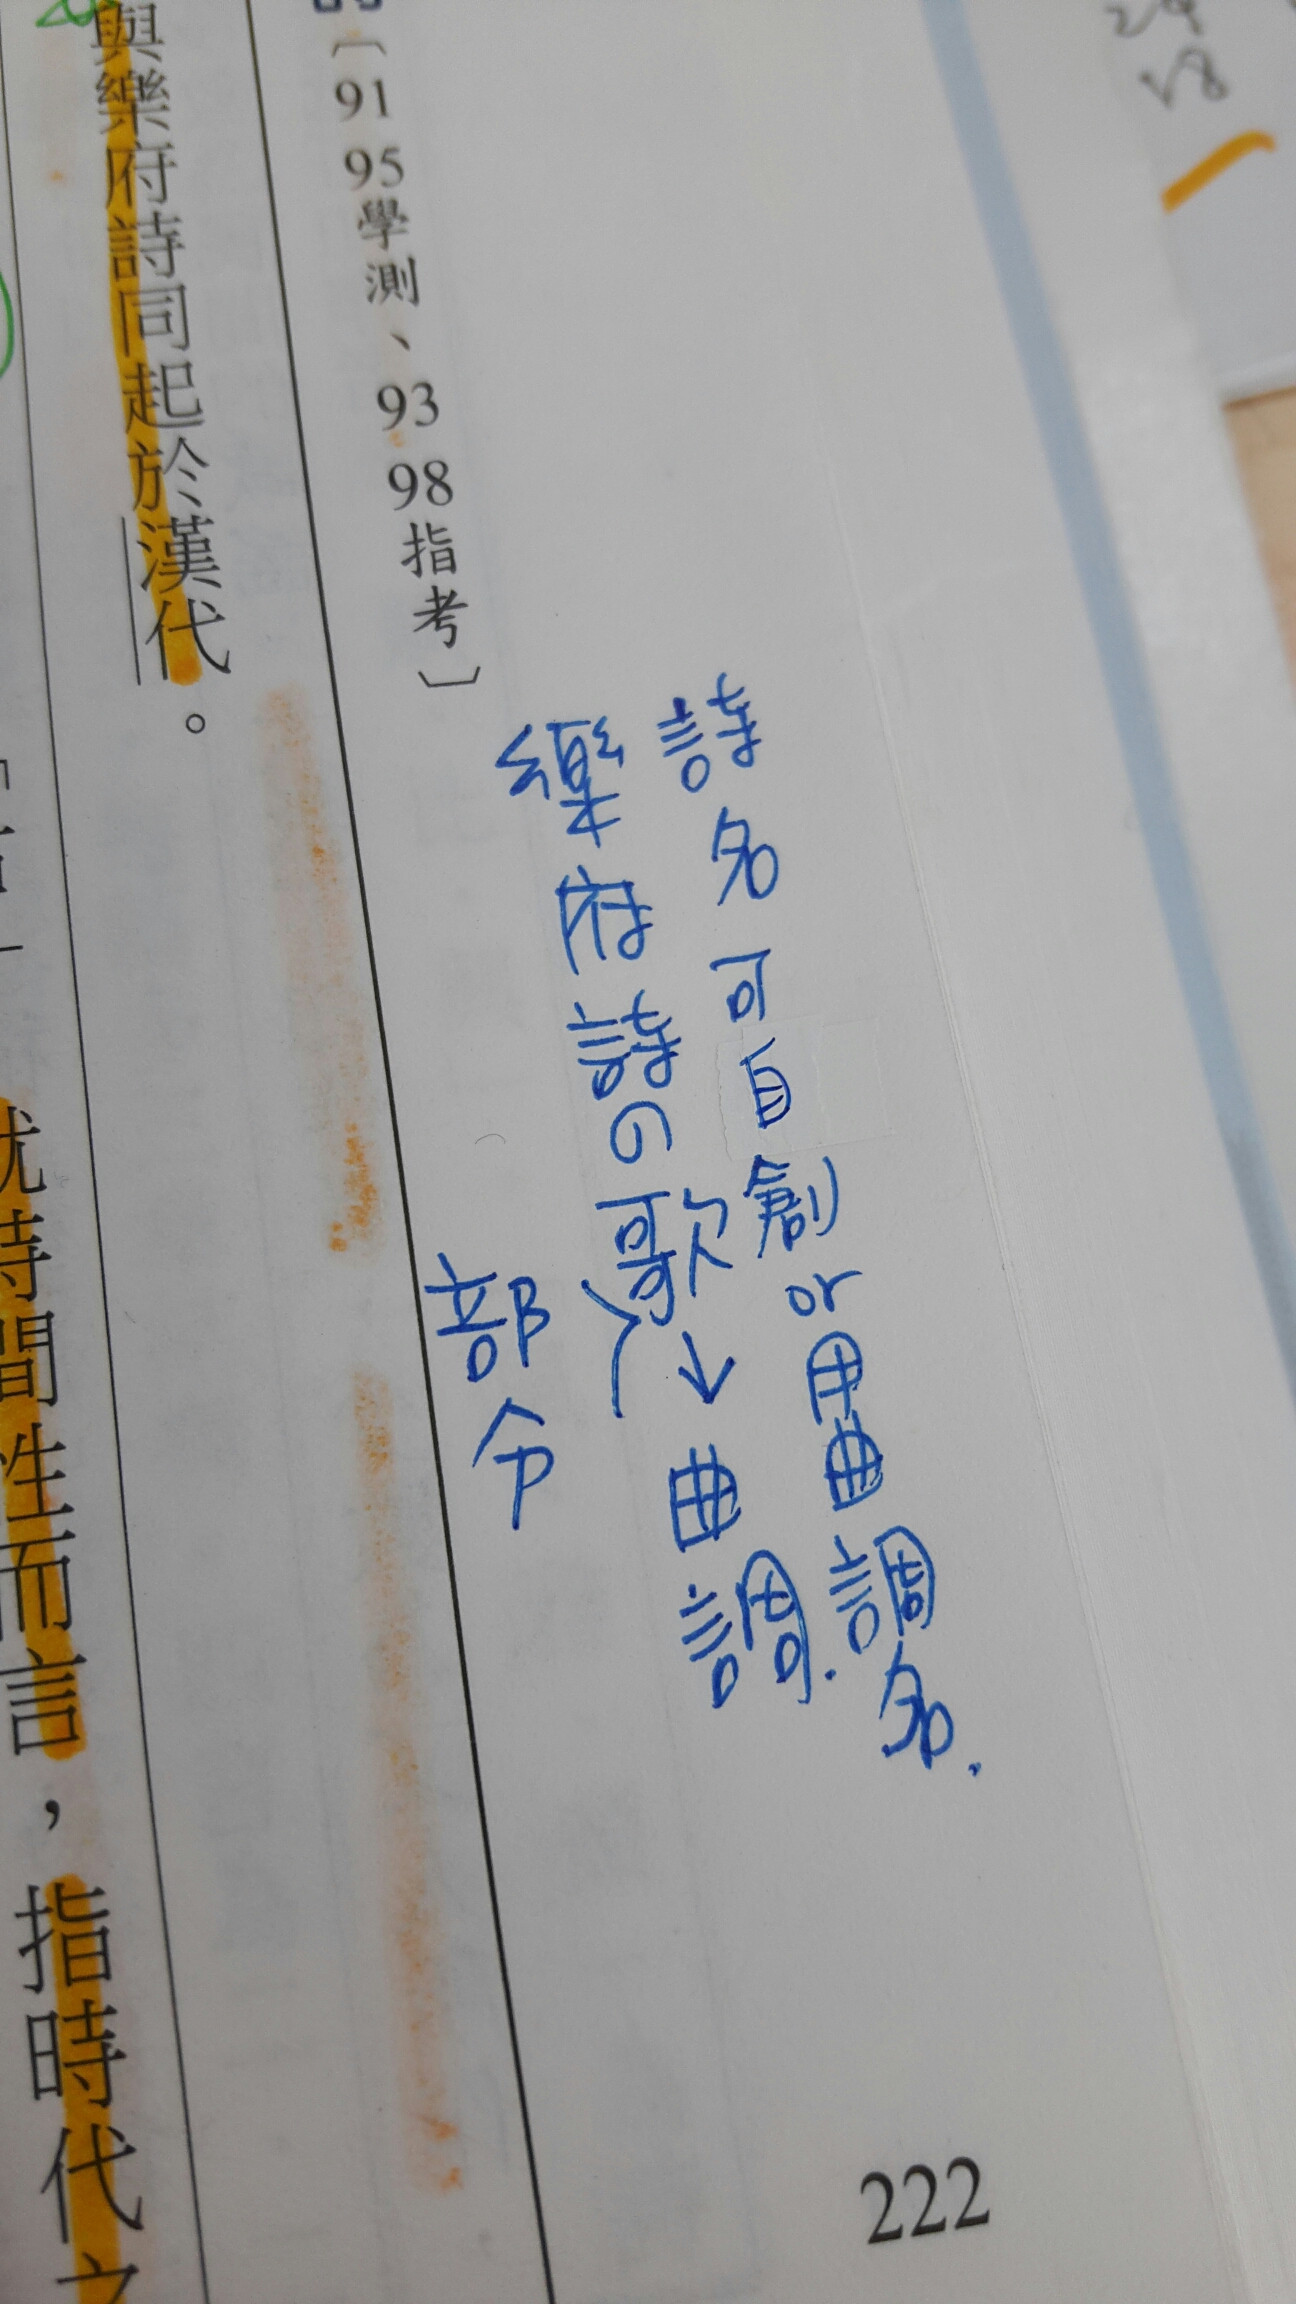 詩名可自創or用曲調名.
樂府詩の歌↓曲調.
部分
〔91 95學測、93 98指考〕
與樂府詩同起於漢代。
就時間性而言，指時代之
222